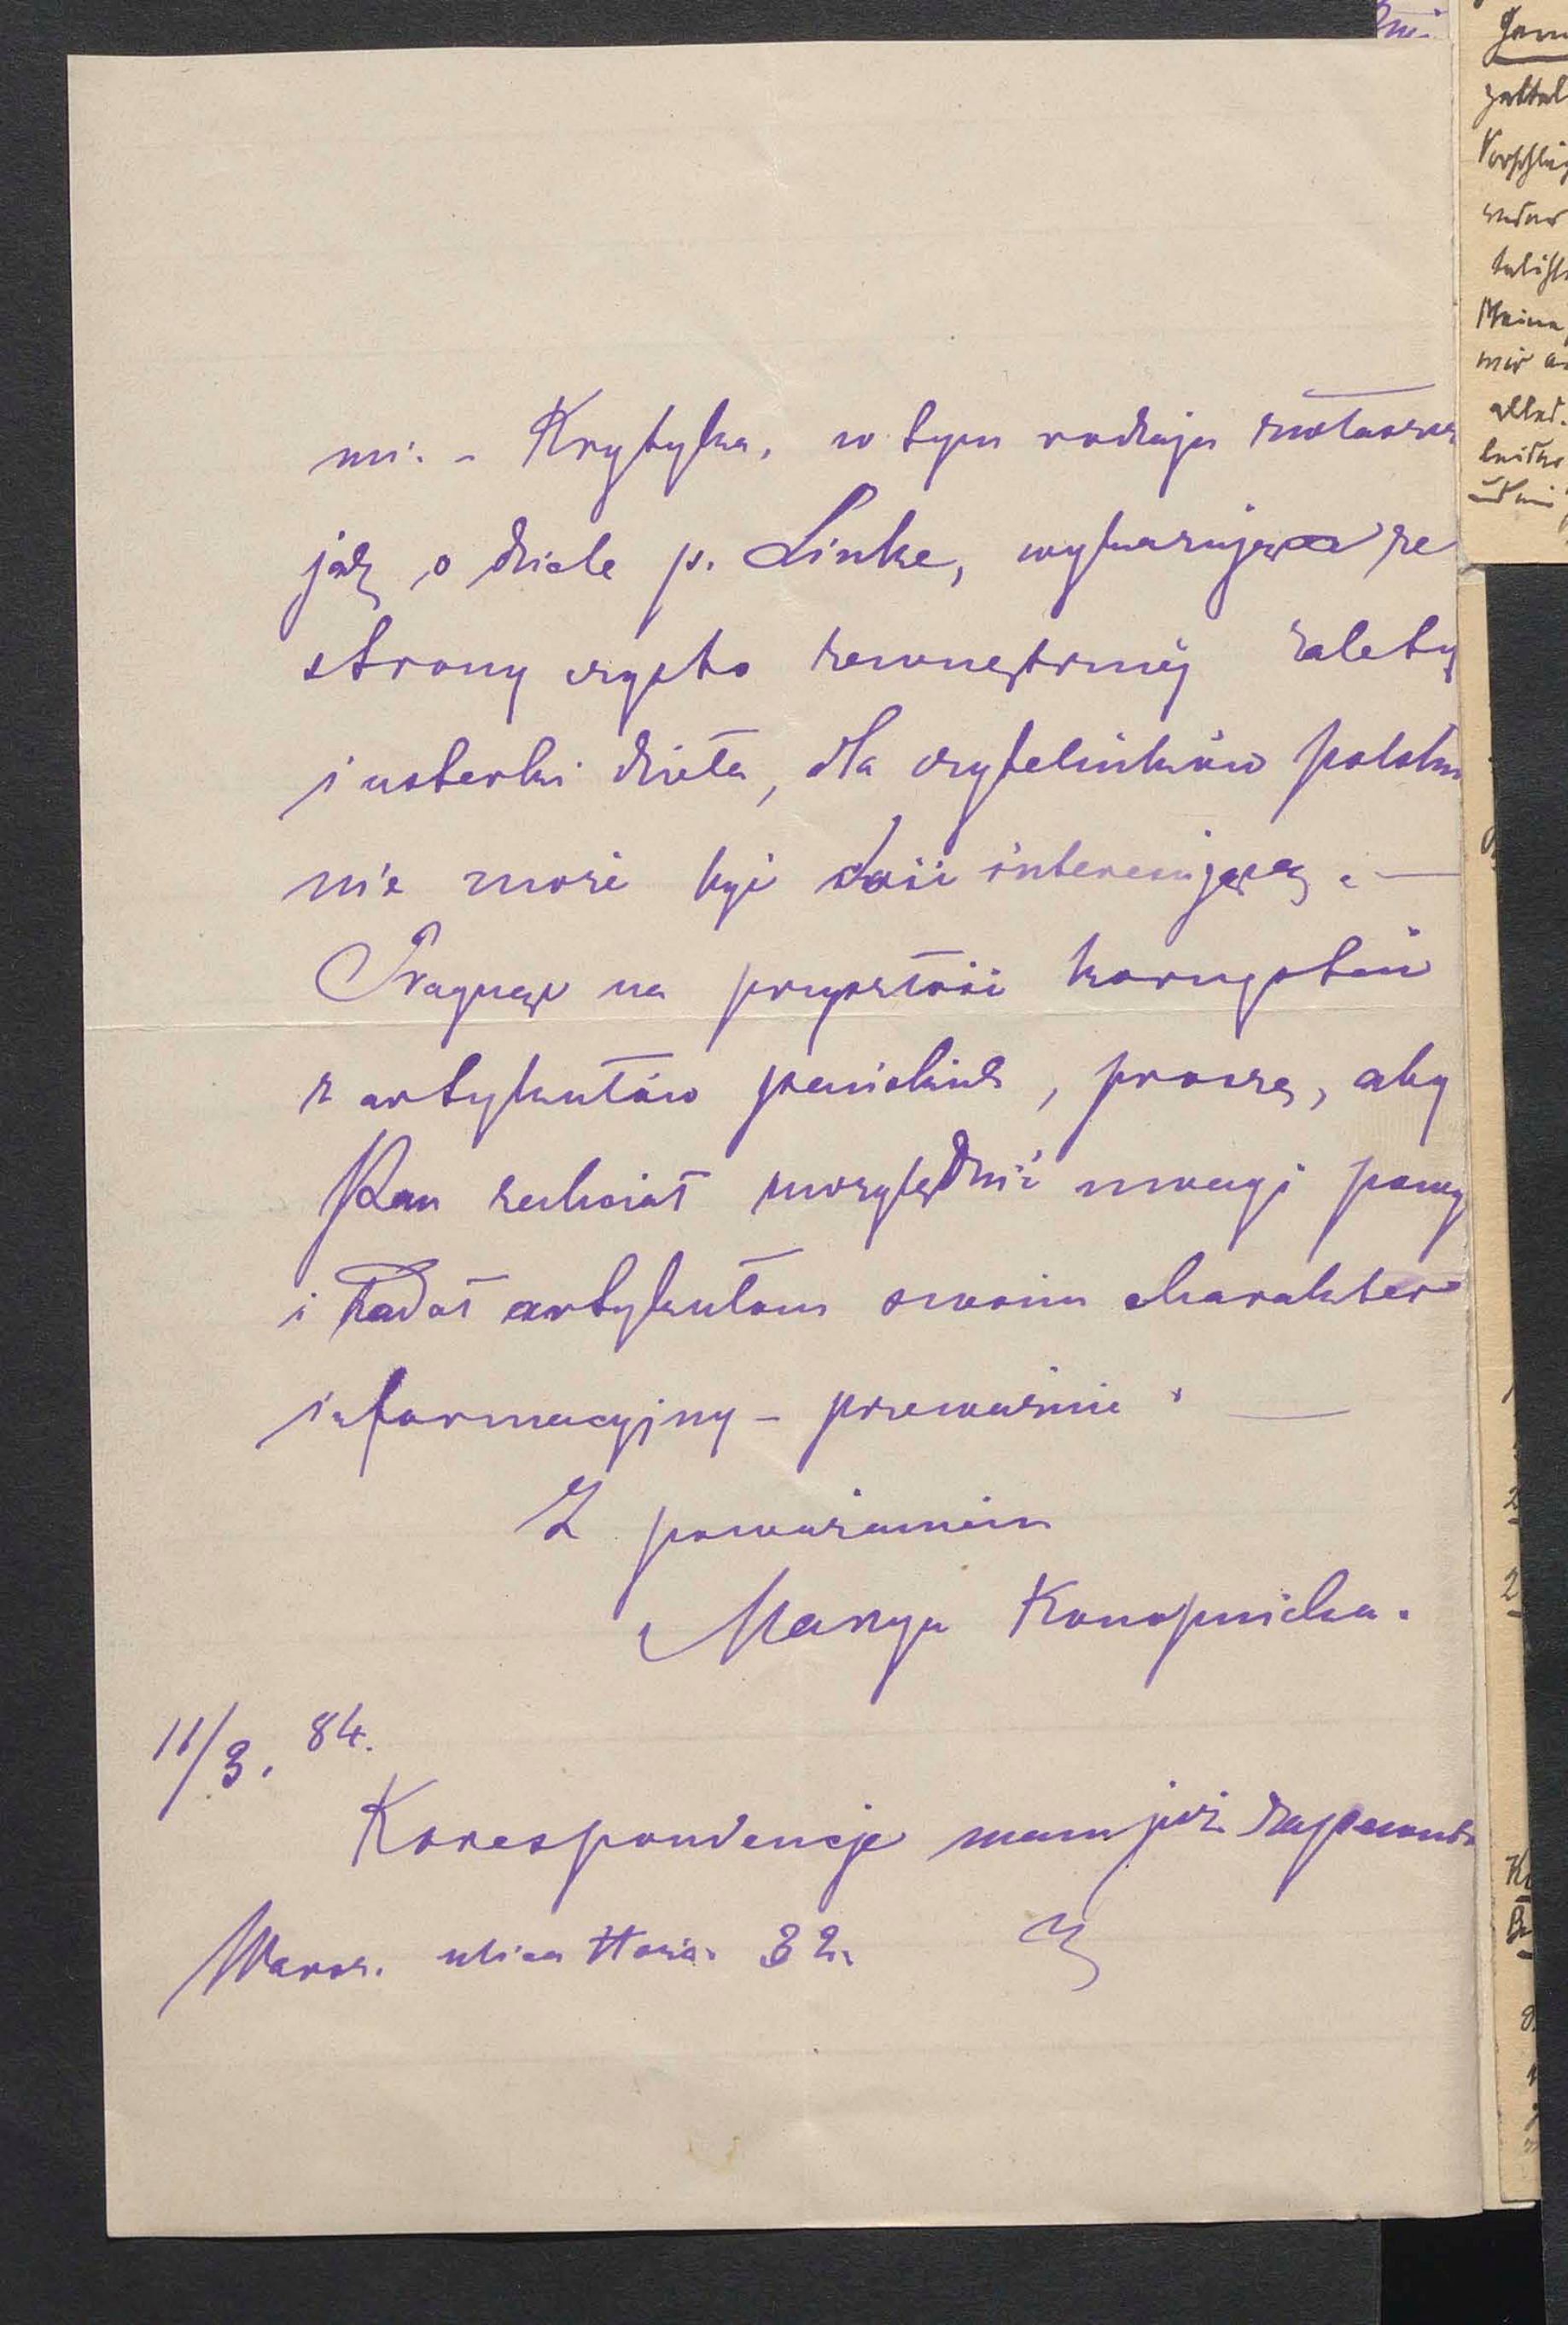 mi. - Krytyka, w tym rodzaju zwłaszcza
jak o dziele p. Linke, wykazująca ze
strony czysto zewnętrznéj zalety
i usterki dzieła, dla czytelników polskich
nie może być dość interesującą. —
Pragnąc na przyszłość korzystać
z artykułów pańskich, proszę, aby
Pan zechciał uwzględnić uwagi powyż
i nadał artykułom swoim charakter
informacyjny - przeważnie. —
Z poważaniem
Marya Konopnicka.
11/3. 84.
Korespondencje mam już zapewnio
Warsz. ulica Hoża. 32.
ną